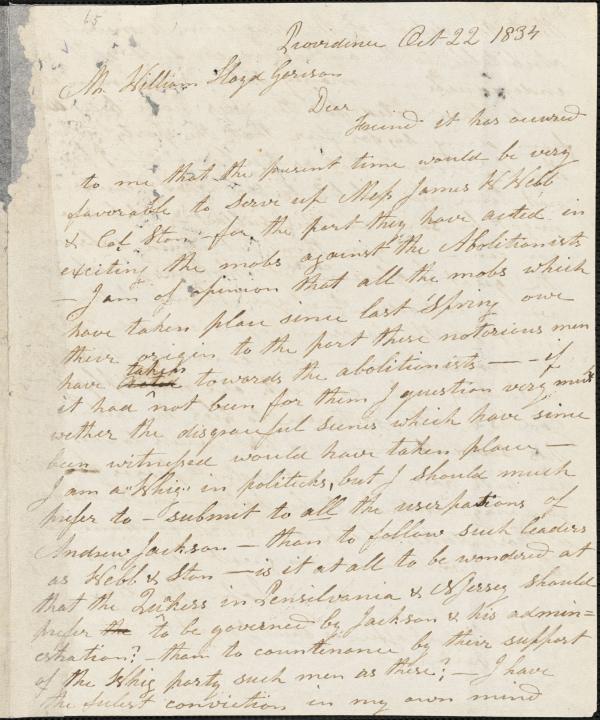 65
Providence Oct 22 1834
Mr William Lloyd Garison
Dear
Friend it has occured
to me that the present time would be very
favorable to serve up Mess James W Webb
& Col Ston for the part they have acted in
exciting the mobs against the Abolitionists
— I am of opinion that all the mobs which
have taken place since last Spring owe
their origin to the part these notorious men
have taken towards the abolitionists — — if
it had not been for them I question very much
wether the disgraceful scenes which have since
been witnessed would have taken place —
I am a "Whig" in politicks, but I should much
prefer to — submit to all the userpations of
Andrew Jackson — than to follow such leaders
as Webb & Ston — is it at all to be wondered at
that the Quakers in Pensilvania & N Jersey should
prefer the to be governed by Jackson & his admin=
estration? — than to countenance by their support
of the Whig party such men as these? — I have
the fulest conviction in my own mind